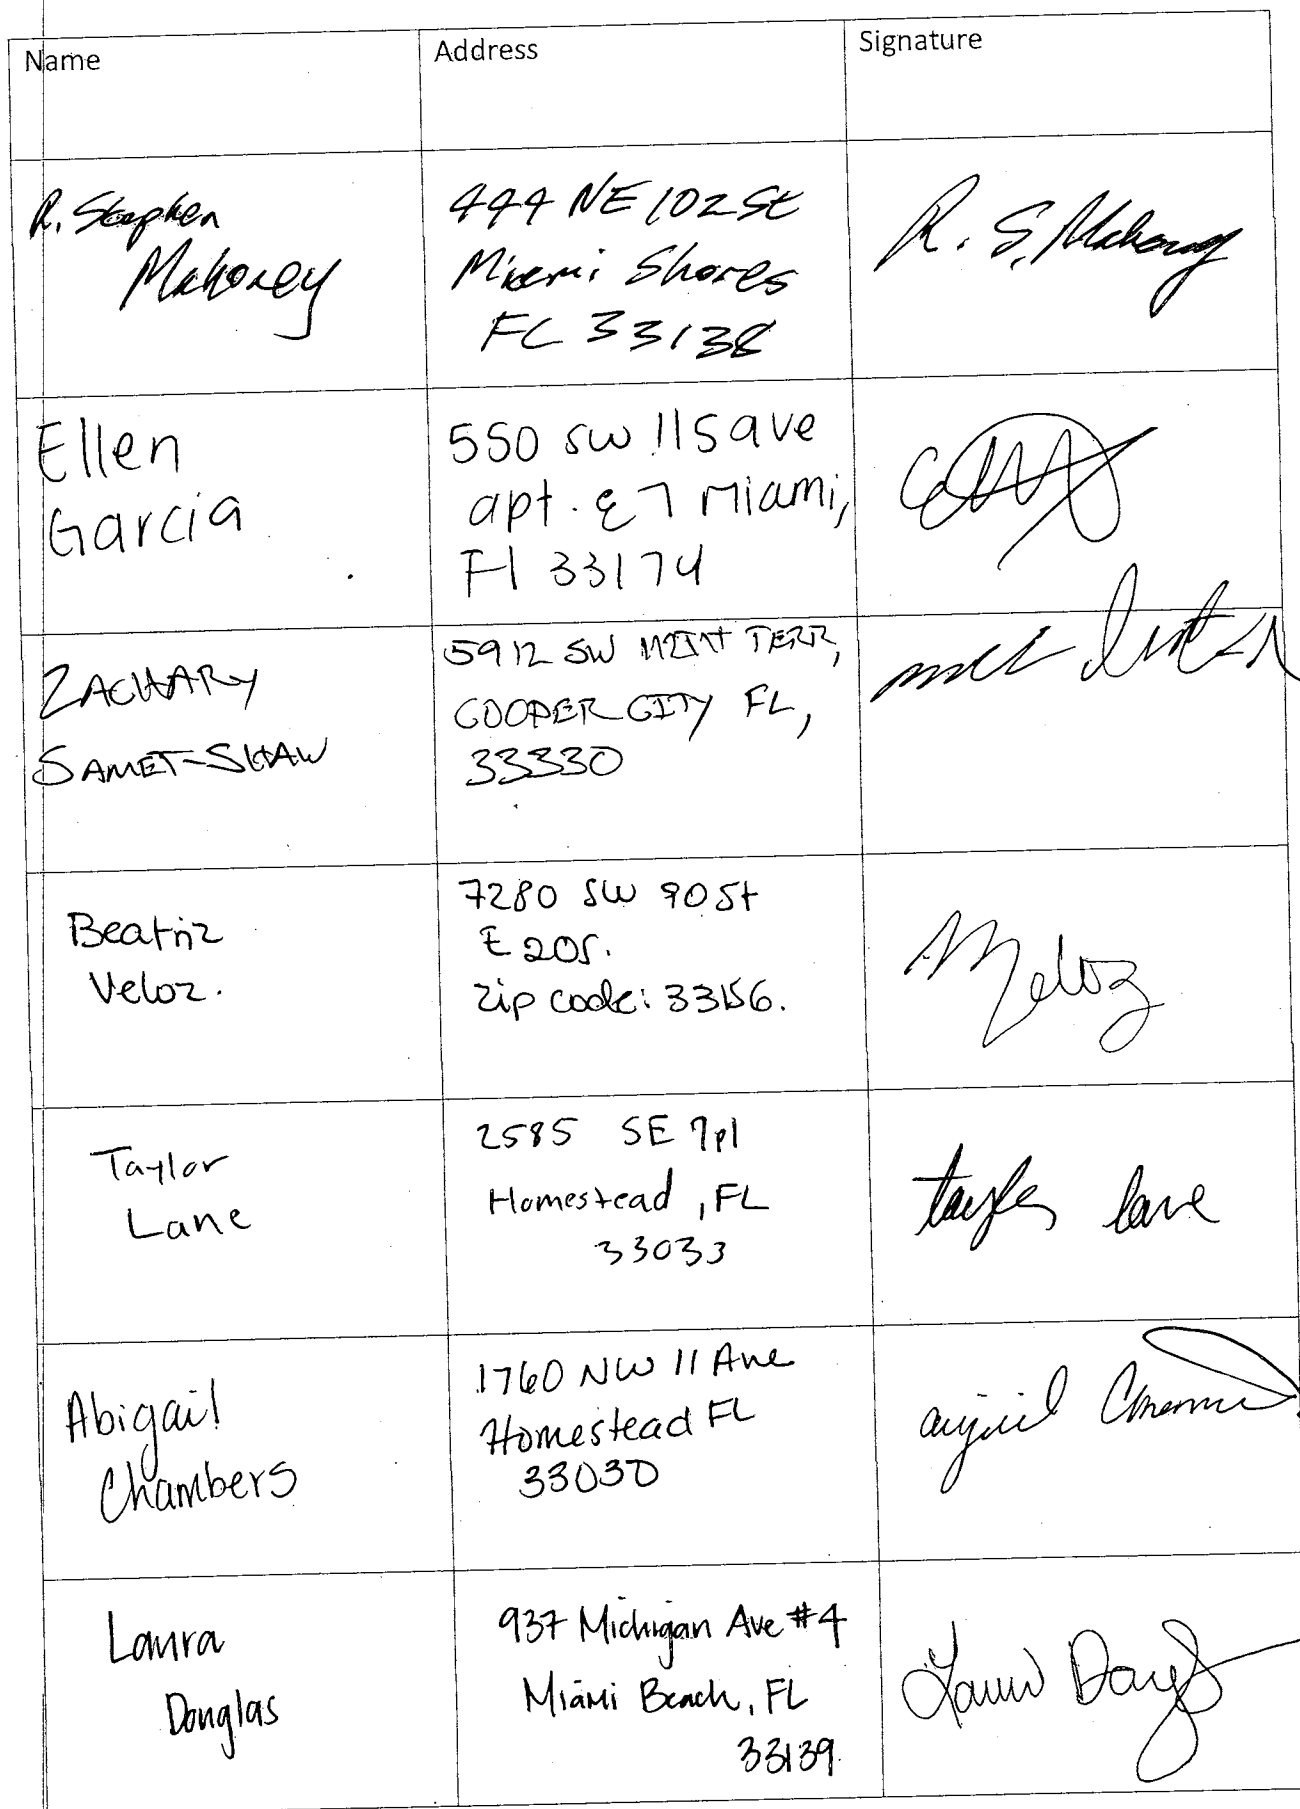 Name
Address
Signature
R. Stephen
Mahoney
444 NE 102 St
Miami Shores
FL 33138
R. S. Mahoney
Ellen
Garcia
550 sw 115 ave
apt. E7 Miami,
Fl 33174
ZACHARY
SAMET-SHAW
5912 SW TERR,
COOPER CITY FL,
33330
Beatriz
Veloz.
7280 SW 90 St
E 205.
Zip code: 33156.
Veloz
Taylor
Lane
2585 SE 7pl
Homestead, FL
33033
taylor lane
Abigail
Chambers
1760 NW 11 Ave
Homestead FL
33030
Laura
Douglas
937 Michigan Ave #4
Miami Beach, FL
33139